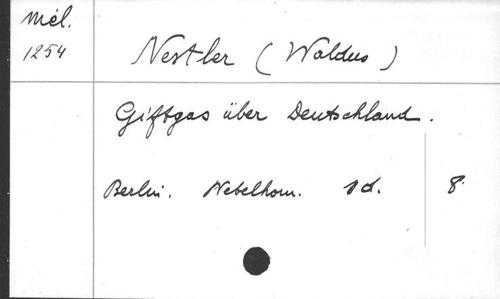 Mél.
1254
Nestler (Waldus)
Giftgas über Deutschland.
Berlin. Nebelhorn. s d. 8.